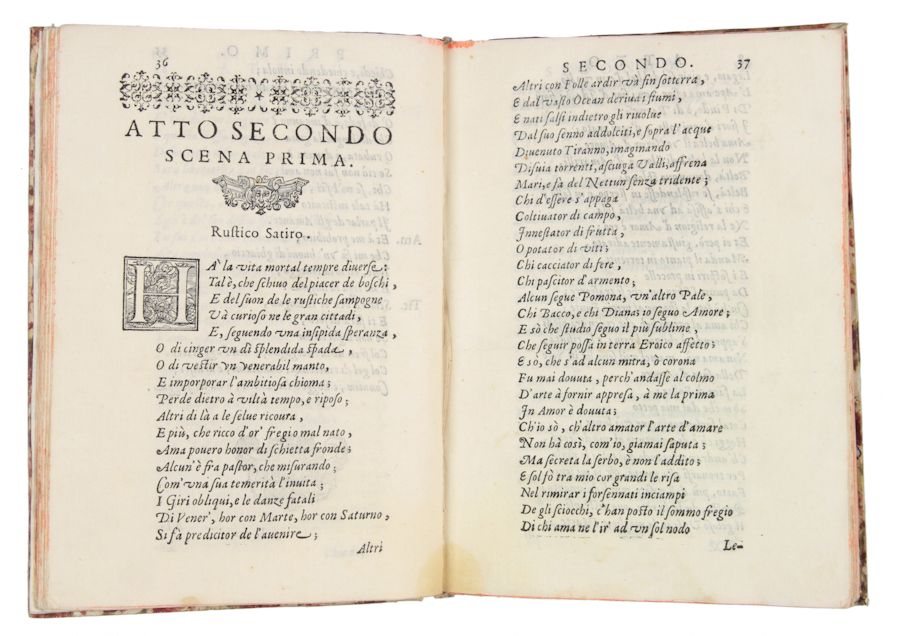 36
ATTO SECONDO
SCENA PRIMA.
Ruſtico Satiro.
HA' la vita mortal tempre diuerſe:
Tal è, che ſchiuo del piacer de boſchi,
E del ſuon de le ruſtiche ſampogne
Và curioſo ne le gran cittadi,
E, ſeguendo vna inſipida ſperanza,
O di cinger vn dì ſplendida ſpada,
O di veſtir vn venerabil manto,
E imporporar l'ambitioſa chioma;
Perde dietro à viltà tempo, e ripoſo;
Altri di là a le ſelue ricoura,
E più, che ricco d'or' fregio mal nato,
Ama pouero honor di ſchietta fronde;
Alcun' è frà paſtor, che miſurando;
Com' vna ſua temerità l'inuita;
I Giri obliqui, e le danze fatali
Di Vener', hor con Marte, hor con Saturno,
Si fà predicitor de l'auenire;
Altri
SECONDO. 37
Altri con folle ardir và ſin ſotterra,
E dal vaſto Ocean deriua i fiumi,
E nati ſalſi indietro gli riuolue
Dal ſuo ſenno addolciti, e ſopra l'acque
Diuenuto Tiranno, imaginando
Diſuia torrenti, aſciuga Valli, affrena
Mari, e fà del Nettun ſenza tridente;
Chi d'eſſere s'appaga
Coltiuator di campo,
Inneſtator di frutta,
O potator di viti;
Chi cacciator di fere,
Chi paſcitor d'armento;
Alcun ſegue Pomona, vn'altro Pale,
Chi Bacco, e chi Diana; io ſeguo Amore;
E sò che ſtudio ſeguo il più ſublime,
Che ſeguir poſſa in terra Eroico affetto;
E sò, che s'ad alcun mitra, ò corona
Fu mai douuta, perch'andaſſe al colmo
D'arte à fornir appreſa, à me la prima
In Amor è douuta;
Ch'io sò, ch'altro amator l'arte d'amare
Non hà così, com'io, giamai ſaputa;
Ma ſecreta la ſerbo, e non l'addito;
E ſol fò tra mio cor grandi le riſa
Nel rimirar i forſennati inciampi
De gli ſciocchi, c'han poſto il ſommo fregio
Di chi ama ne l'ir' ad vn ſol nodo
Le-